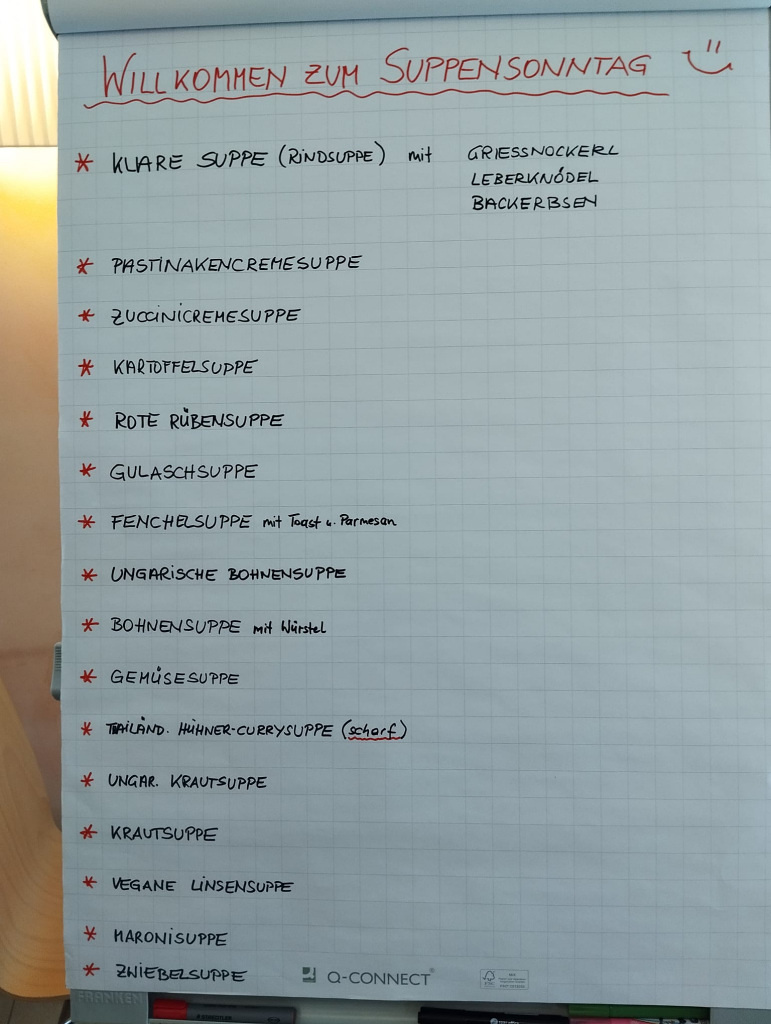 WILLKOMMEN ZUM SUPPENSONNTAG
* KLARE SUPPE (RINDSUPPE) mit GRIESSNOCKERL
LEBERKNÖDEL
BACKERBSEN
* PASTINAKENCREMESUPPE
* ZUCCINICREMESUPPE
* KARTOFFELSUPPE
* ROTE RÜBENSUPPE
* GULASCHSUPPE
* FENCHELSUPPE mit Toast u. Parmesan
* UNGARISCHE BOHNENSUPPE
* BOHNENSUPPE mit Würstel
* GEMÜSESUPPE
* THAILÄND. HÜHNER-CURRYSUPPE (scharf)
* UNGAR. KRAUTSUPPE
* KRAUTSUPPE
* VEGANE LINSENSUPPE
* MARONISUPPE
* ZWIEBELSUPPE
Q-CONNECT®
FSC
FRANKEN